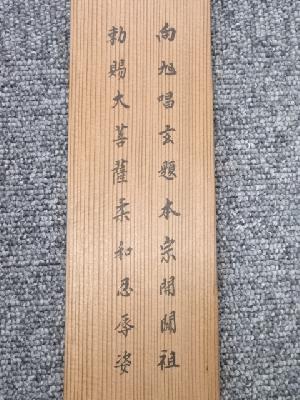 向旭唱玄題本宗開闢祖
勅賜大菩薩柔和忍辱姿